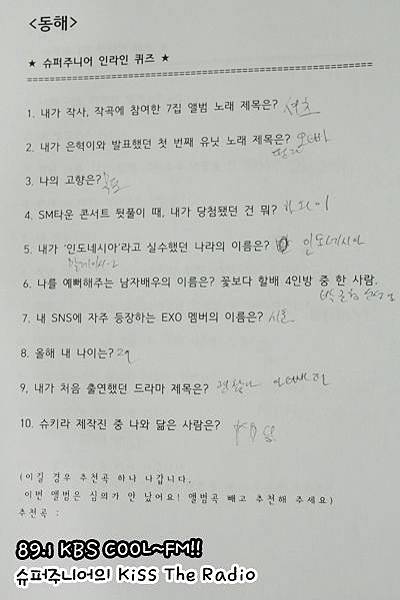 <동해>
★ 슈퍼주니어 인라인 퀴즈 ★
1. 내가 작사, 작곡에 참여한 7집 앨범 노래 제목은? 셔츠
2. 내가 은혁이와 발표했던 첫 번째 유닛 노래 제목은? 오바
3. 나의 고향은? 목포
4. SM타운 콘서트 뒷풀이 때, 내가 당첨됐던 건 뭐? 하와이
5. 내가 '인도네시아'라고 실수했던 나라의 이름은? 인도네시아
6. 나를 예뻐해주는 남자배우의 이름은? 꽃보다 할배 4인방 중 한 사람.
박근형 선생님
7. 내 SNS에 자주 등장하는 EXO 멤버의 이름은? 시우
8. 올해 내 나이는? 29
9, 내가 처음 출연했던 드라마 제목은? 괜찮아 아빠딸
10. 슈키라 제작진 중 나와 닮은 사람은?
(이길 경우 추천곡 하나 나갑니다.
이번 앨범은 심의가 안 났어요! 앨범곡 빼고 추천해 주세요)
추천곡 :
89.1 KBS COOL~FM!!
슈퍼주니어의 Kiss The Radio